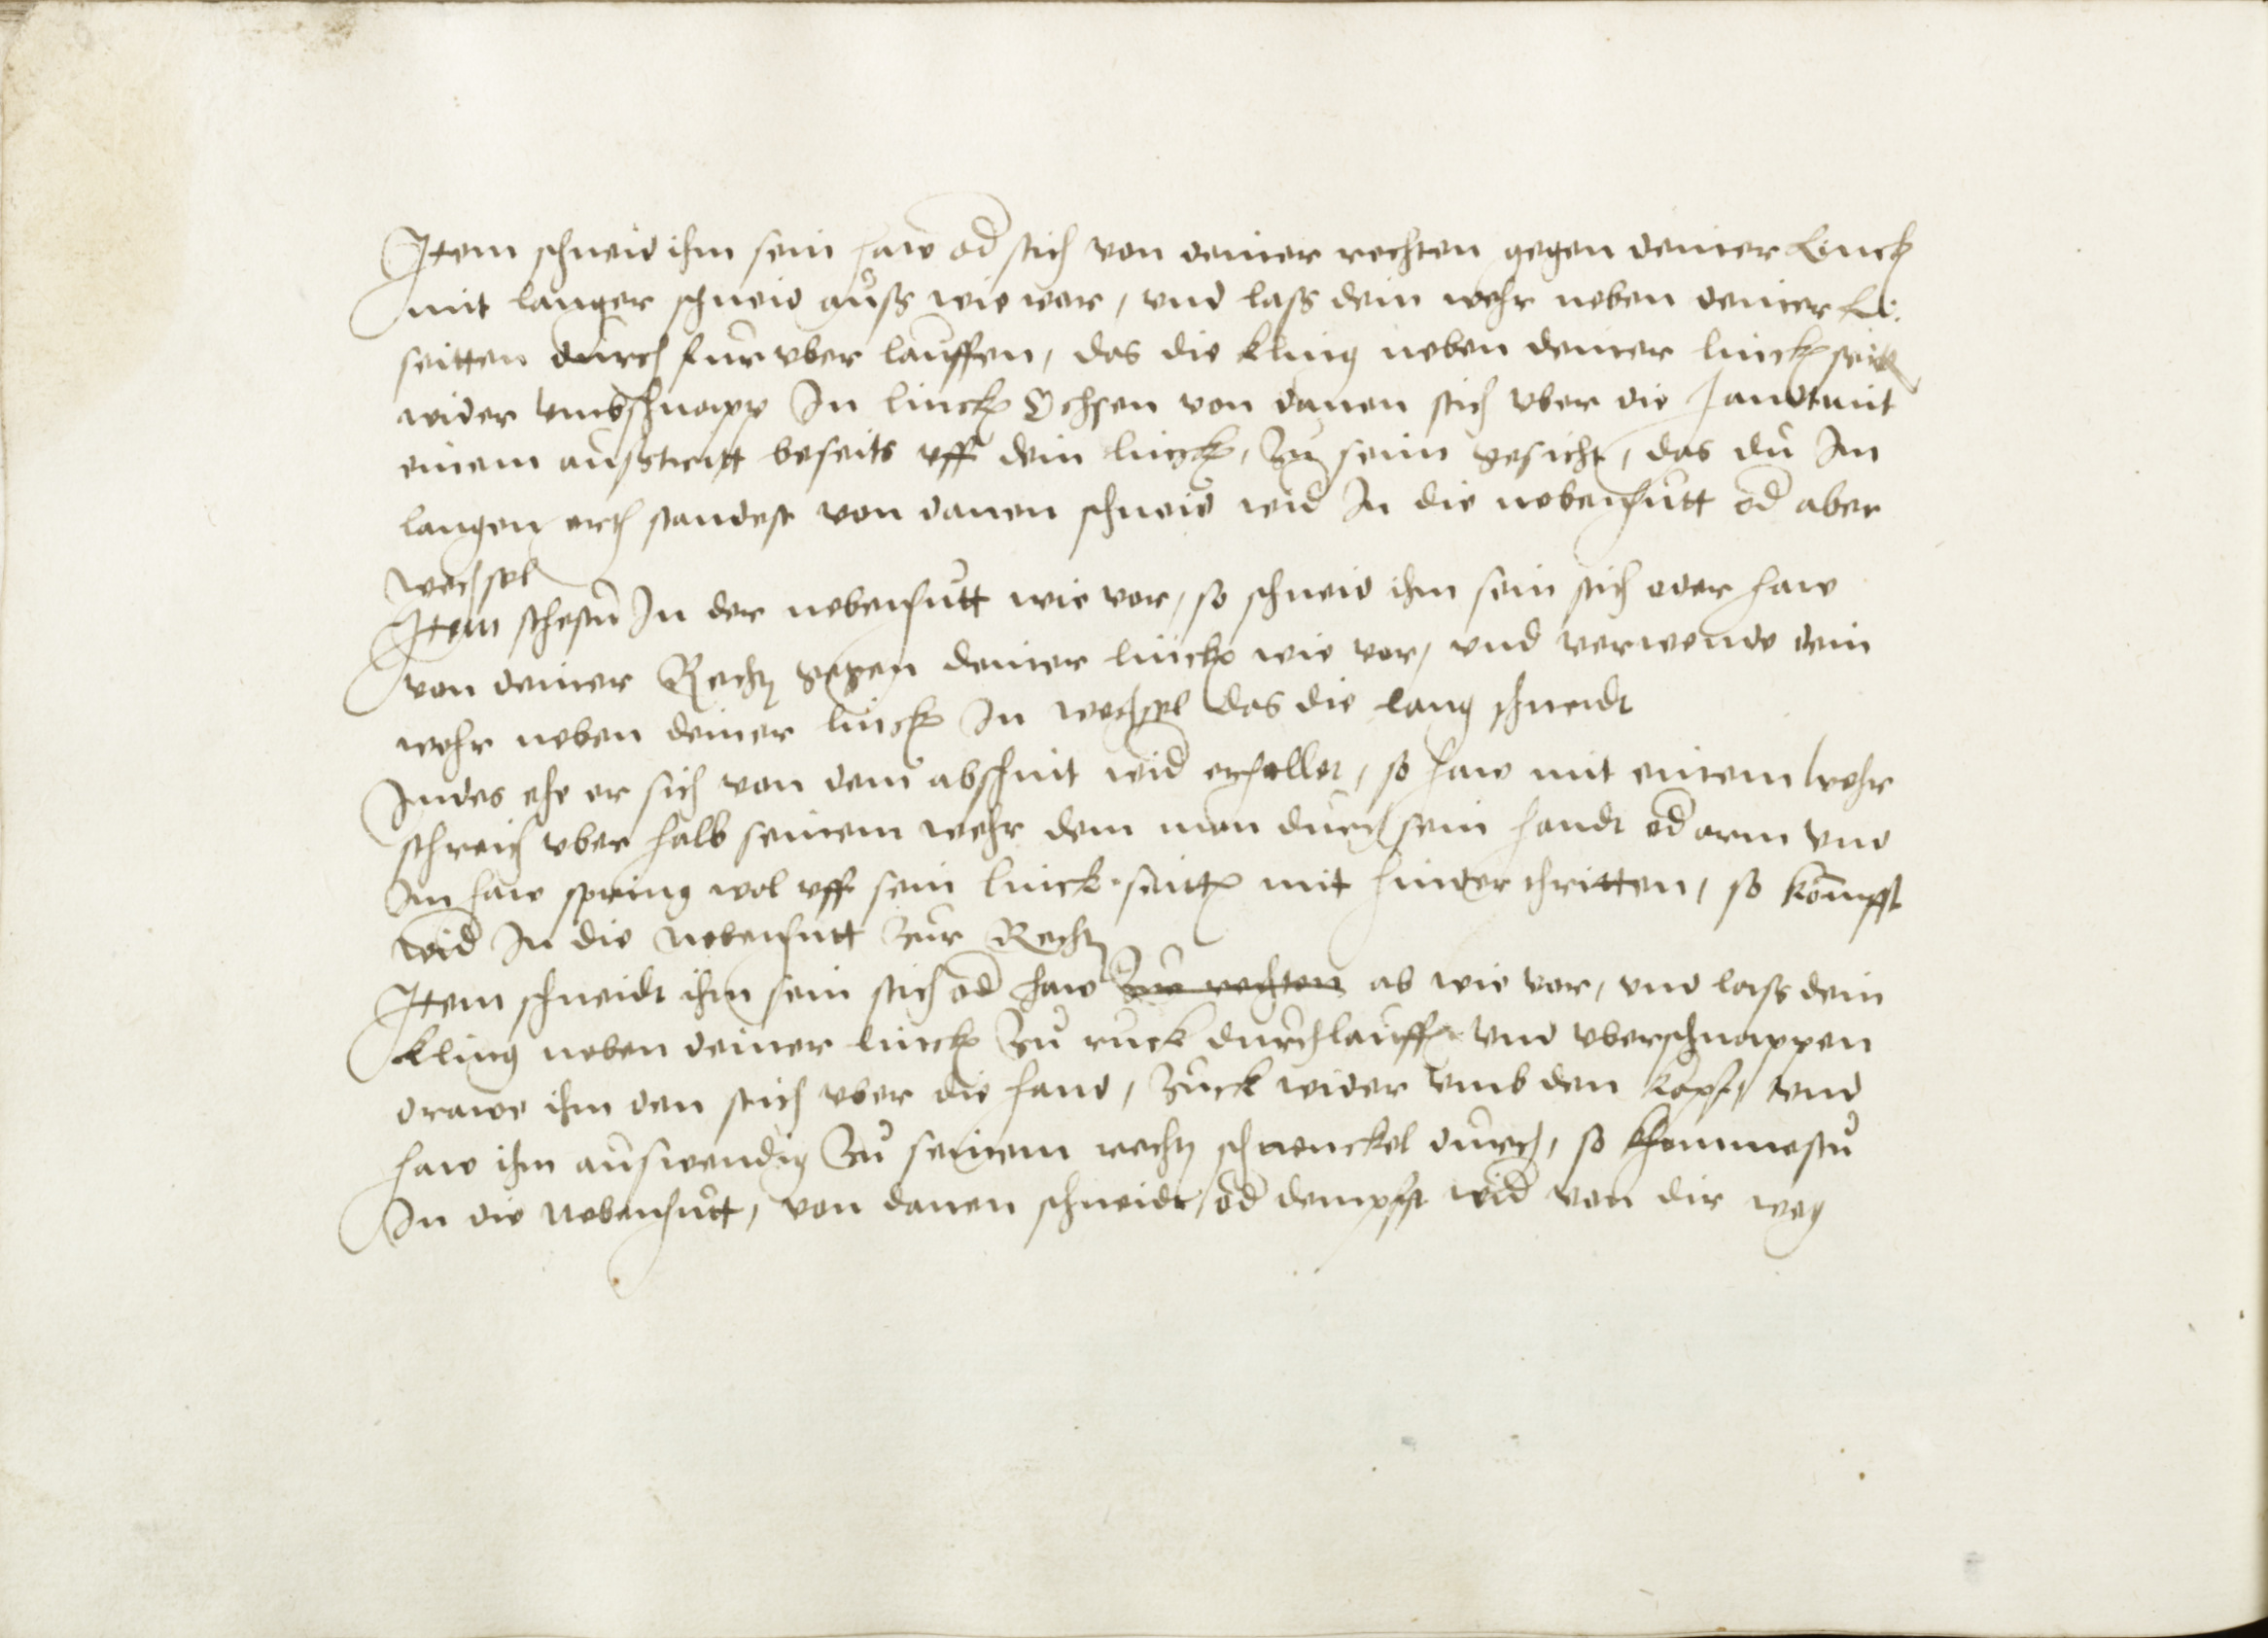 Item schneid ihm sein haw od stich von deiner rechten gegen deiner Linck
mit langer schneid auß wie vor, vnd laß dein wehr neben deiner Li:
seitten durch fürvber lauffen, das die kling neben deiner linck seit
wider vmbschnapp In linck Ochsen von danen stich vber die handt mit
einem außtritt beseits vff dein linck, Zu seim gesicht, das du Im
langen ort standest von danen schneid wid In die nebenhutt od aber
wechsel
Item stehestu In der nebenhutt wie vor, so schneid ihm sein stich oder haw
von deiner Recht gegen deiner linck wie vor, vnd verwende dein
wehr neben deiner linck In wechsel das die lang schneidt
Indes ehe er sich von dem abschnit wid erhollet, so haw mit einem wehr
streich vber halb seinem wehr dem man durch sein handt od arm vnd
Im haw spring wol vff sein linck seitt mit hinter tritten, so kompst
wid In die nebenhutt zur Recht
Item schneidt ihm sein stich od haw zur rechten ab wie vor, vnd laß dein
kling neben deiner linck Zu ruck durchlauff vnd vberschnappen
drawe ihm den stich vber die hand, Zuck wider vmb den kopf, vnd
haw ihm auswendig Zu seinem recht schenckel durch, so khommestu
In die Nebenhutt, von danen schneidt, od dempfft wid von dir weg